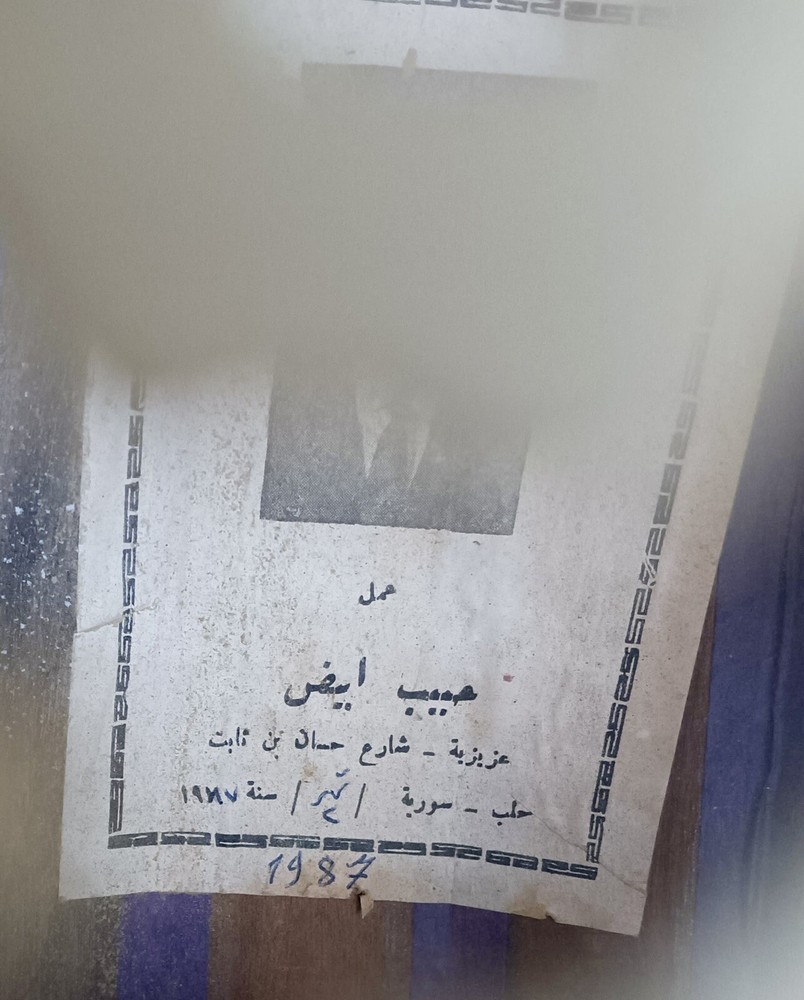 عمل
حبيب ابيض
عزيزية - شارع حسان بن ثابت
حلب - سورية / شهر ٢ / سنة ١٩٨٧
1987